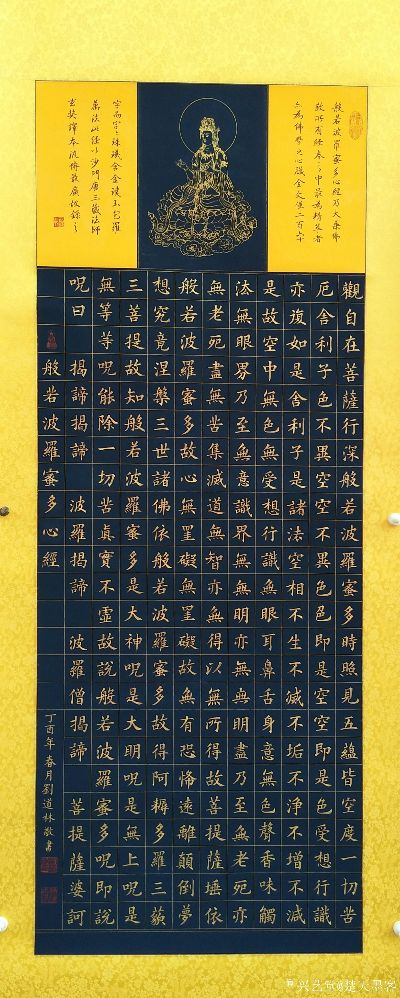 般若波羅蜜多心經乃大乘佛
教所有經卷之中最為精要者
亦為佛學之心臟全文僅二百六十
字而字字珠璣含金
包羅
萬法此經以沙門唐三藏法師
玄奘譯本流傳最廣敬錄之
觀自在菩薩行深般若波羅蜜多時照見五蘊皆空度一切苦
厄舍利子色不異空空不異色色即是空空即是色受想行識
亦復如是舍利子是諸法空相不生不滅不垢不淨不增不減
是故空中無色無受想行識無眼耳鼻舌身意無色聲香味觸
法無眼界乃至無意識界無無明亦無無明盡乃至無老死亦
無老死盡無苦集滅道無智亦無得以無所得故菩提薩埵依
般若波羅蜜多故心無罣礙無罣礙故無有恐怖遠離顛倒夢
想究竟涅槃三世諸佛依般若波羅蜜多故得阿耨多羅三藐
三菩提故知般若波羅蜜多是大神呪是大明呪是無上呪是
無等等呪能除一切苦真實不虛故說般若波羅蜜多呪即說
呪曰 揭諦揭諦 波羅揭諦 波羅僧揭諦 菩提薩婆訶
般若波羅蜜多心經
丁酉年春月劉道林敬書
@楚天墨客